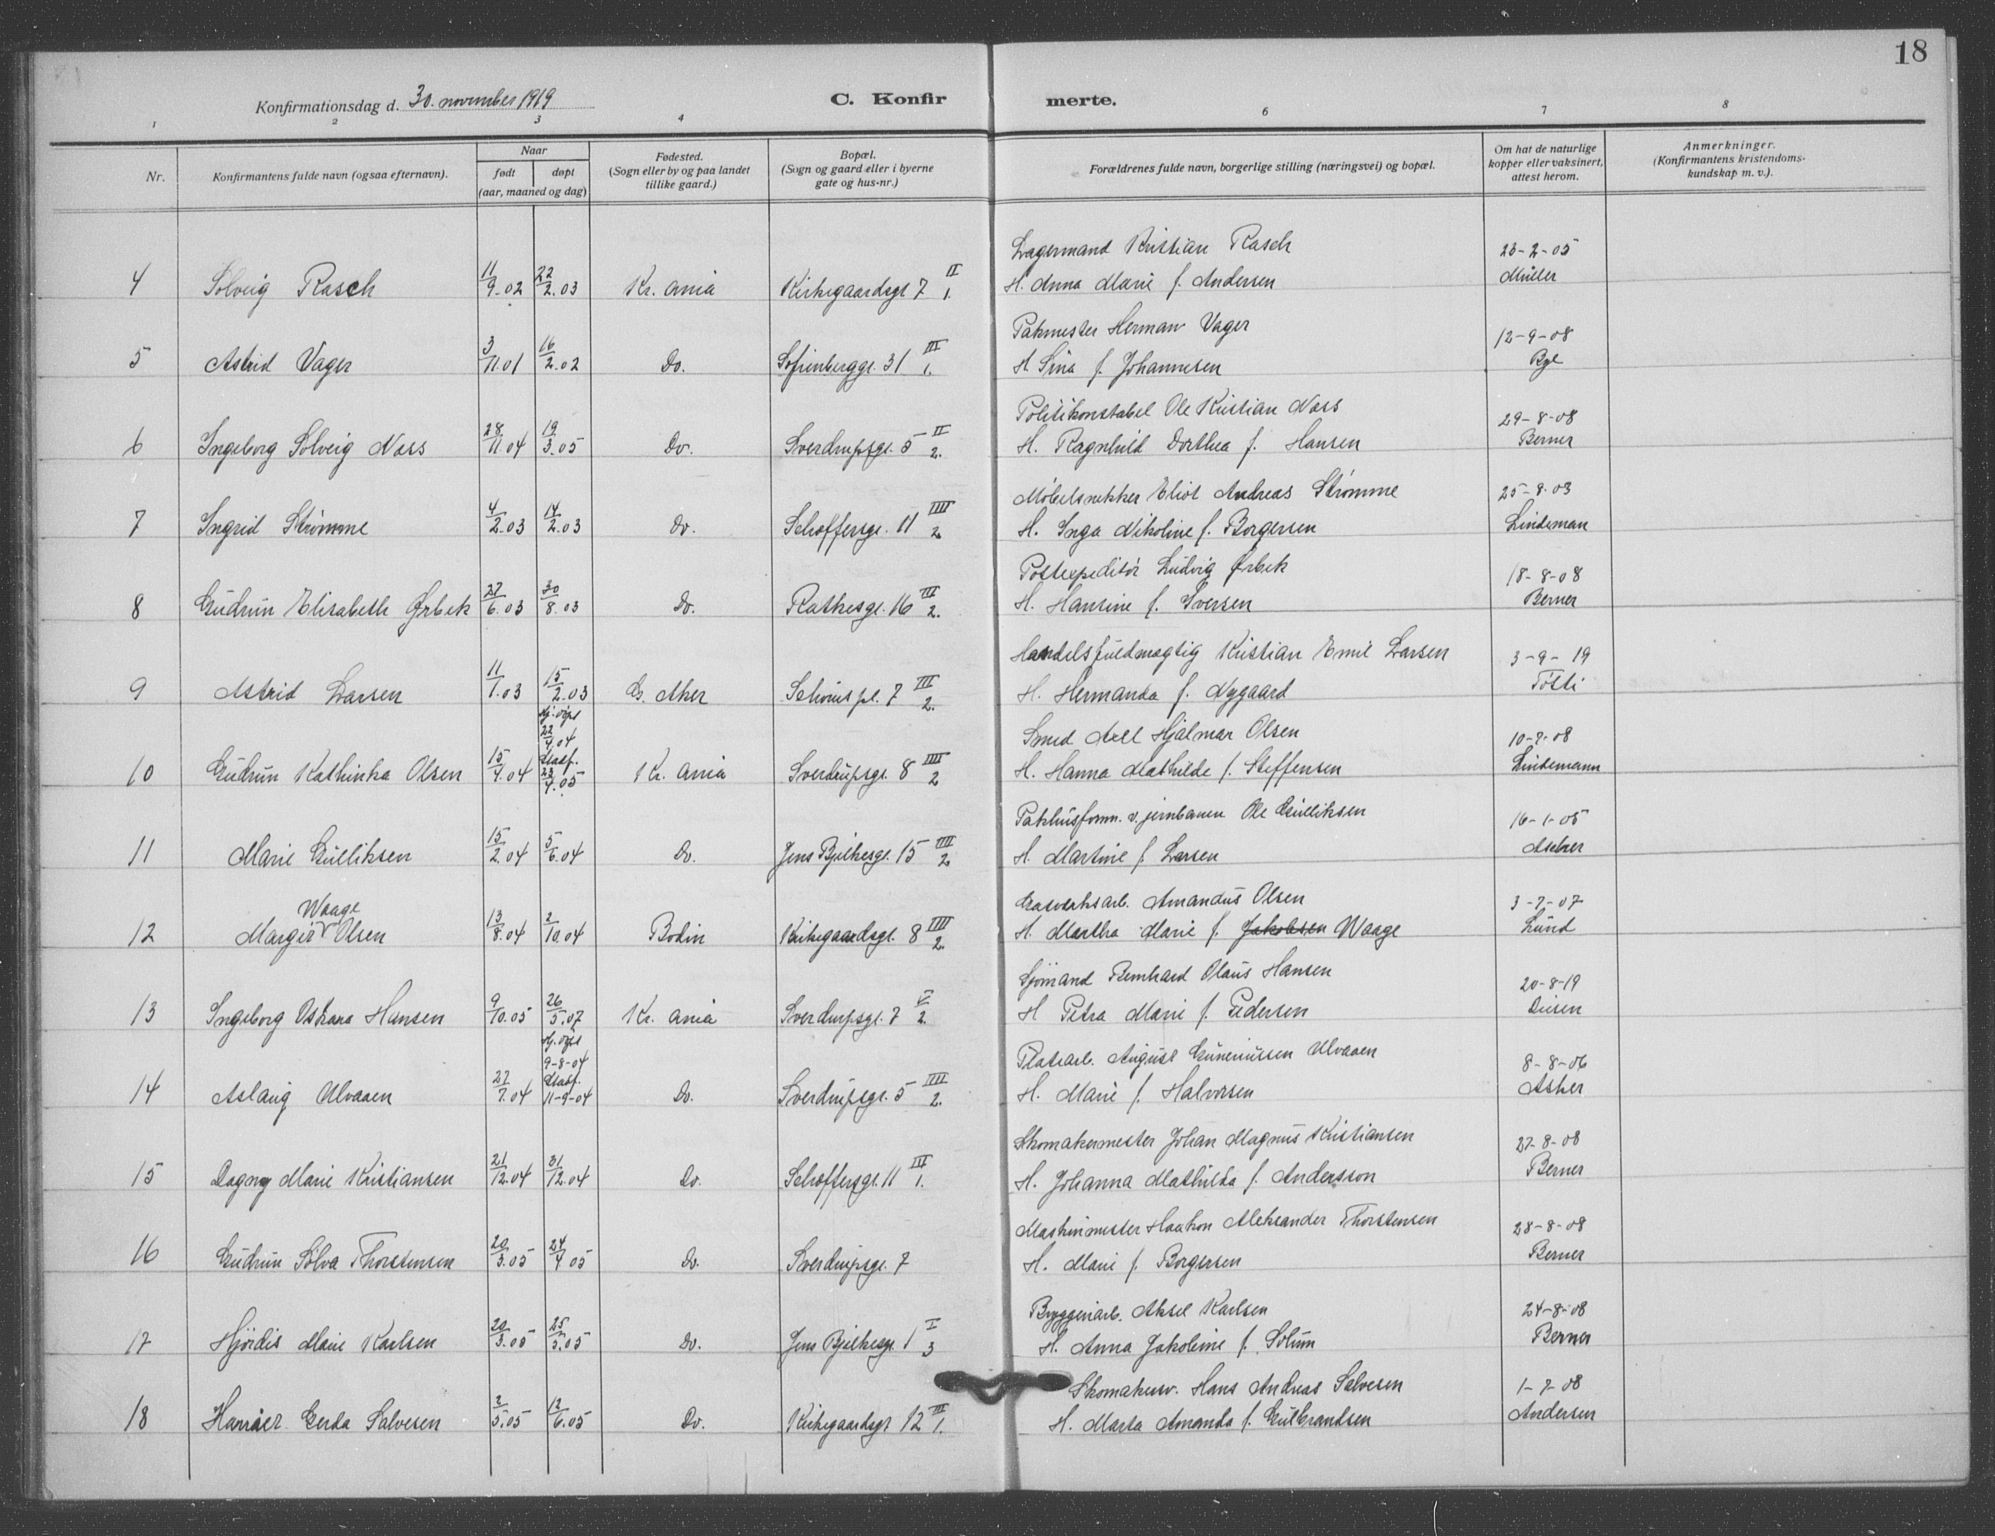 18
Konfirmationsdag d. 30. november 1919
C. Konfir merte.
1 2 3 4 6 7 8
Nr.
Konfirmantens fulde navn (ogsaa efternavn).
Naar
født døpt
(aar, maaned og dag)
Fødested.
(Sogn eller by og paa landet
tillike gaard.)
Bopæl.
(Sogn og gaard eller i byerne
gate og hus-nr.)
Forældrenes fulde navn, borgerlige stilling (næringsvei) og bopæl.
Om hat de naturlige
kopper eller vaksinert,
attest herom.
Anmerkninger.
(Konfirmantens kristendoms-
kundskap m. v.).
Lagermand Kristian Rasch 23-2-05
4 Solveig Rasch 11/9.02 22/2.03 Kr.ania Kirkegaardsgt 7 II/1. H. Anna Marie f. Andersen Müller
Pakmester Herman Vager 12-9-08
5 Astrid Vager 3/11.01 16/2.02 Do. Sofienberggt. 31 III/1. H. Sina f. Johannesen Bye
Politikonstabel Ole Kristian Næss 29-8-08
6 Ingeborg Solveig Næss 28/11.04 19/3.05 Do. Sverdrupsgt. 5 II/2. H. Ragnhild Dorthea f. Hansen Berner
Møbelsnekker Eliot Andreas Strømme 25-8-03
7 Ingrid Strømme 4/2.03 14/2.03 Do. Schøffersgt. 11 IIII/2 H. Inga Nikoline f. Borgersen Lindeman
Postexpeditør Ludvig Ørbek 18-8-08
8 Gudrun Elisabeth Ørbek 27/6.03 30/8.03 Do. Rathkesgt. 16 III/2. H. Hansine f. Iversen Berner
Handelsfuldmægtig Kristian Emil Larsen 3-9-19
9 Astrid Larsen 11/1.03 15/2.03 Ø. Aker Schous pl. 7 III/2. H. Hermanda f. Nygaard Totti
Hj. døpt
22/4.04
Stadf.
Smed Axel Hjalmar Olsen 10-7-08
10 Gudrun Kathinka Olsen 15/4.04 23/4.05 Kr.ania Sverdrupsgt. 8 IIII/2 H. Hanna Mathilde f. Steffensen Lindemann
Pakhusform. v. jernbanen Ole Gulliksen 16-1-05
11 Marie Gulliksen 15/2.04 5/6.04 Do. Jens Bjelkesgt. 15 IIII/2. H. Martine f. Larsen Asker
Waage
Gasverksarb. Amandus Olsen 3-7-07
12 Margit Olsen 13/8.04 2/10.04 Bodin Kirkegaardsgt. 8 IIII/2. H. Martha Marie f. Jakobsen Waage Lund
Sjømand Bernhard Olaus Hansen 20-8-19
13 Ingeborg Oskara Hansen 9/10.05 26/5.07 Kr.ania Sverdrupsgt. 7 V/2. H Petra Marie f. Pedersen Diesen
Hj. døpt
9-8-04
Stadf.
Platearb. August Guneriussen Ulvaaen 8-8-06
14 Aslaug Ulvaaen 27/7.04 11-9-04 Do. Sverdrupsgt. 5 IIII/2. H. Marie f. Halvorsen Asker
Skomakermester Johan Magnus Kristiansen 27-8-08
15 Dagny Marie Kristiansen 21/12.04 31/12.04 Do. Schøffersgt. 11 III/1. H. Johanna Mathilda f. Andersson Berner
Maskinmester Haakon Aleksander Thorstensen 28-8-08
16 Gudrun Solva Thorstensen 20/3.05 24/4 05 Do. Sverdrupsgt. 7 H. Marie f. Borgersen Berner
Bryggeriarb. Aksel Karlsen 24-8-08
17 Hjørdis Marie Karlsen 20/3.05 25/5.05 Do. Jens Bjelkesgt. 1 I/3 H. Anna Jakobine f. Solum Berner
Skomakersv. Hans Andreas Salvesen 1-7-08
18 Harriet Gerda Salvesen 2/5.05 12/6.05 Do. Kirkegaardsgt 12 III/1. H. Marta Amanda f. Gulbrandsen Andersen